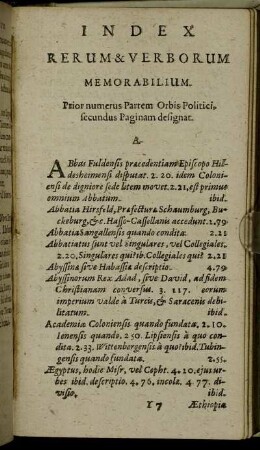 INDEX
RERUM & VERBORUM
MEMORABILIUM.
Prior numerus Partem Orbis Politici,
secundus Paginam designat.
A.
ABbas Fuldensis præcedentiam Episcopo Hil-
desheimensi disputat. 2. 20. idem Coloni-
ensi de digniore sede litem movet. 2.21, est primus
omnium Abbatum. ibid.
Abbatia Hirsfeld, Præfectura Schaumburg, Bu-
ckeburg, &c. Hasso-Cassellanis accedunt. 1.79
Abbatia Sangallensis quando condita. 2.21
Abbatiatus sunt vel singulares, vel Collegiales.
2.20, Singulares quot ib. Collegiales quot 2.21
Abyssinæ sive Habassiæ descriptio. 4.79
Abyssinorum Rex Adad, sive David, ad fidem
Christianam conversus. 3. 117. eorum
imperium valde à Turcis, & Saracenis debi-
litatum. ibid.
Academia Coloniensis quando fundata, 2.10.
Ienensis quando. 250. Lipsiensis à quo con-
dita. 2.33. Wittenbergensis à quo ibid. Tubin-
gensis quando fundata. 2.55.
Ægyptus, hodie Misr, vel Copht. 4.20, ejus ur-
bes ibid. descriptio. 4,76, incolæ. 4.77. di-
visio, ibid.
Y 7 Æthiopia